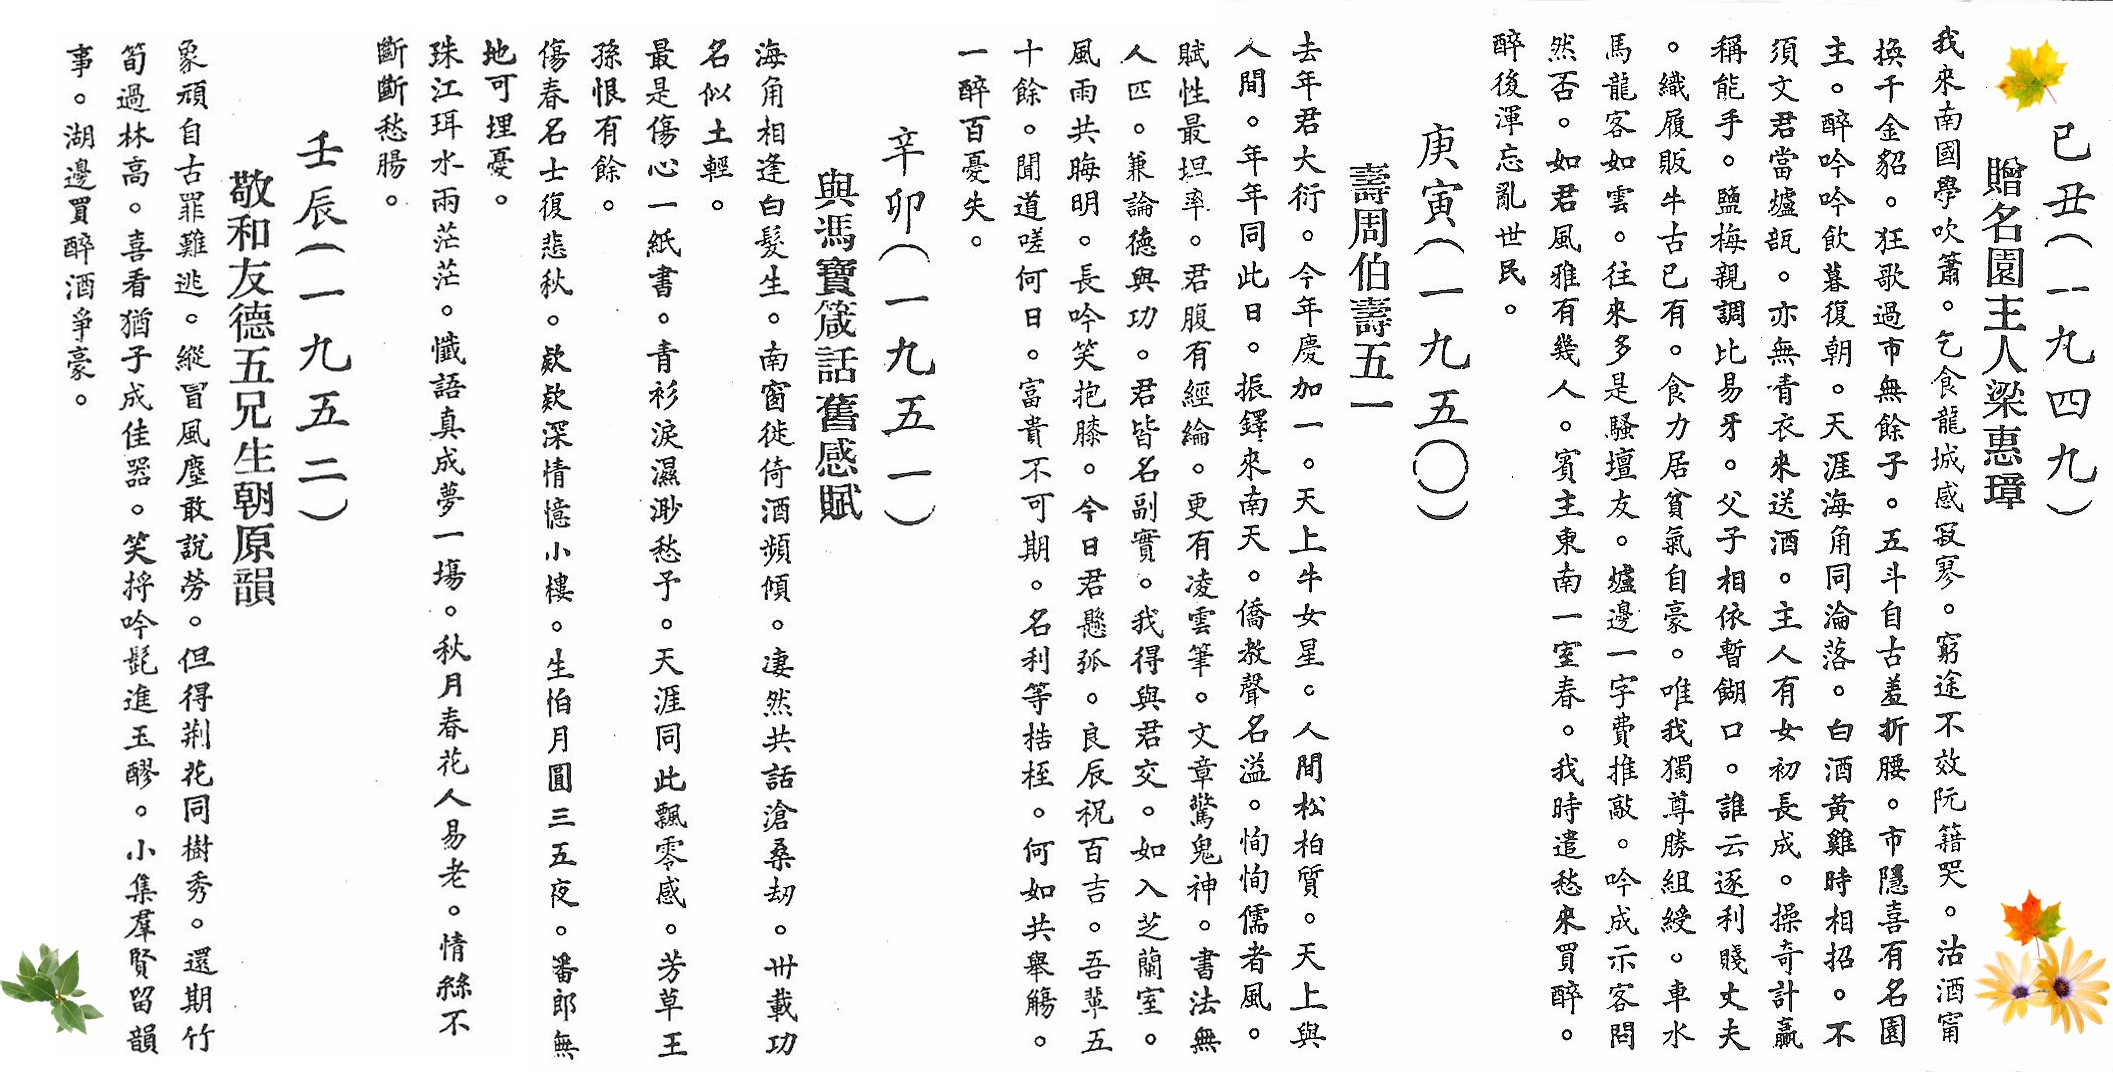 己丑(一九四九)
贈名園主人梁惠璋
我來南國學吹簫。乞食龍城感寂寥。窮途不效阮籍哭。沽酒甯
換千金貂。狂歌過市無餘子。五斗自古羞折腰。市隱喜有名園
主。醉吟吟飲暮復朝。天涯海角同淪落。白酒黃雞時相招。不
須文君當爐瓿。亦無青衣來送酒。主人有女初長成。操奇計贏
稱能手。鹽梅親調比易牙。父子相依暫餬口。誰云逐利賤丈夫
。織履販牛古已有。食力居貧氣自豪。唯我獨尊勝組綬。車水
馬龍客如雲。往來多是騷壇友。爐邊一字費推敲。吟成示客問
然否。如君風雅有幾人。賓主東南一室春。我時遣愁來買醉。
醉後渾忘亂世民。
庚寅(一九五〇)
壽周伯壽五一
去年君大衍。今年慶加一。天上牛女星。人間松柏質。天上與
人間。年年同此日。振鐸來南天。僑教聲名溢。恂恂儒者風。
賦性最坦率。君腹有經綸。更有凌雲筆。文章驚鬼神。書法無
人匹。兼論德與功。君皆名副實。我得與君交。如入芝蘭室。
風雨共晦明。長吟笑抱膝。今日君懸弧。良辰祝百吉。吾輩五
十餘。聞道嗟何日。富貴不可期。名利等梏桎。何如共舉觴。
一醉百憂失。
辛卯(一九五一)
與馮寶箴話舊感賦
海角相逢白髮生。南窗徙倚酒頻傾。淒然共話滄桑劫。卅載功
名似土輕。
最是傷心一紙書。青衫淚濕渺愁予。天涯同此飄零感。芳草王
孫恨有餘。
傷春名士復悲秋。款款深情憶小樓。生怕月圓三五夜。番郎無
地可埋憂。
珠江珥水兩茫茫。懺語真成夢一場。秋月春花人易老。情絲不
斷斷愁腸。
壬辰(一九五二)
敬和友德五兄生朝原韻
象頑自古罪難逃。縱冒風塵敢說勞。但得荆花同樹秀。還期竹
筍過林高。喜看猶子成佳器。笑捋吟髭進玉醪。小集羣賢留韻
事。湖邊買醉酒爭豪。